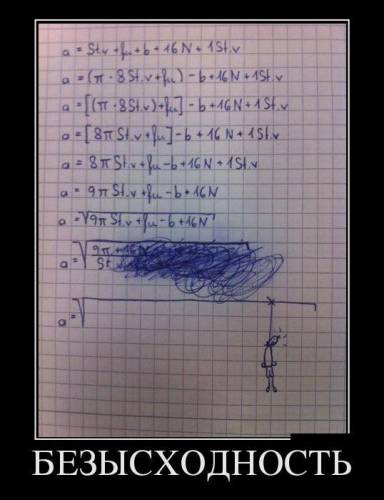 a = St.v + fu + b + 16N + 1St.v
a = (π · 8St.v + fu) - b + 16N + 1St.v
a = [(π · 8St.v) + fu] - b + 16N + 1St.v
a = [8πSt.v + fu] - b + 16N + 1St.v
a = 8πSt.v + fu - b + 16N + 1St.v
a = 9πSt.v + fu - b + 16N
a = √9πSt.v + fu - b + 16N
a = √9π + 16N
St
a = √
БЕЗЫСХОДНОСТЬ